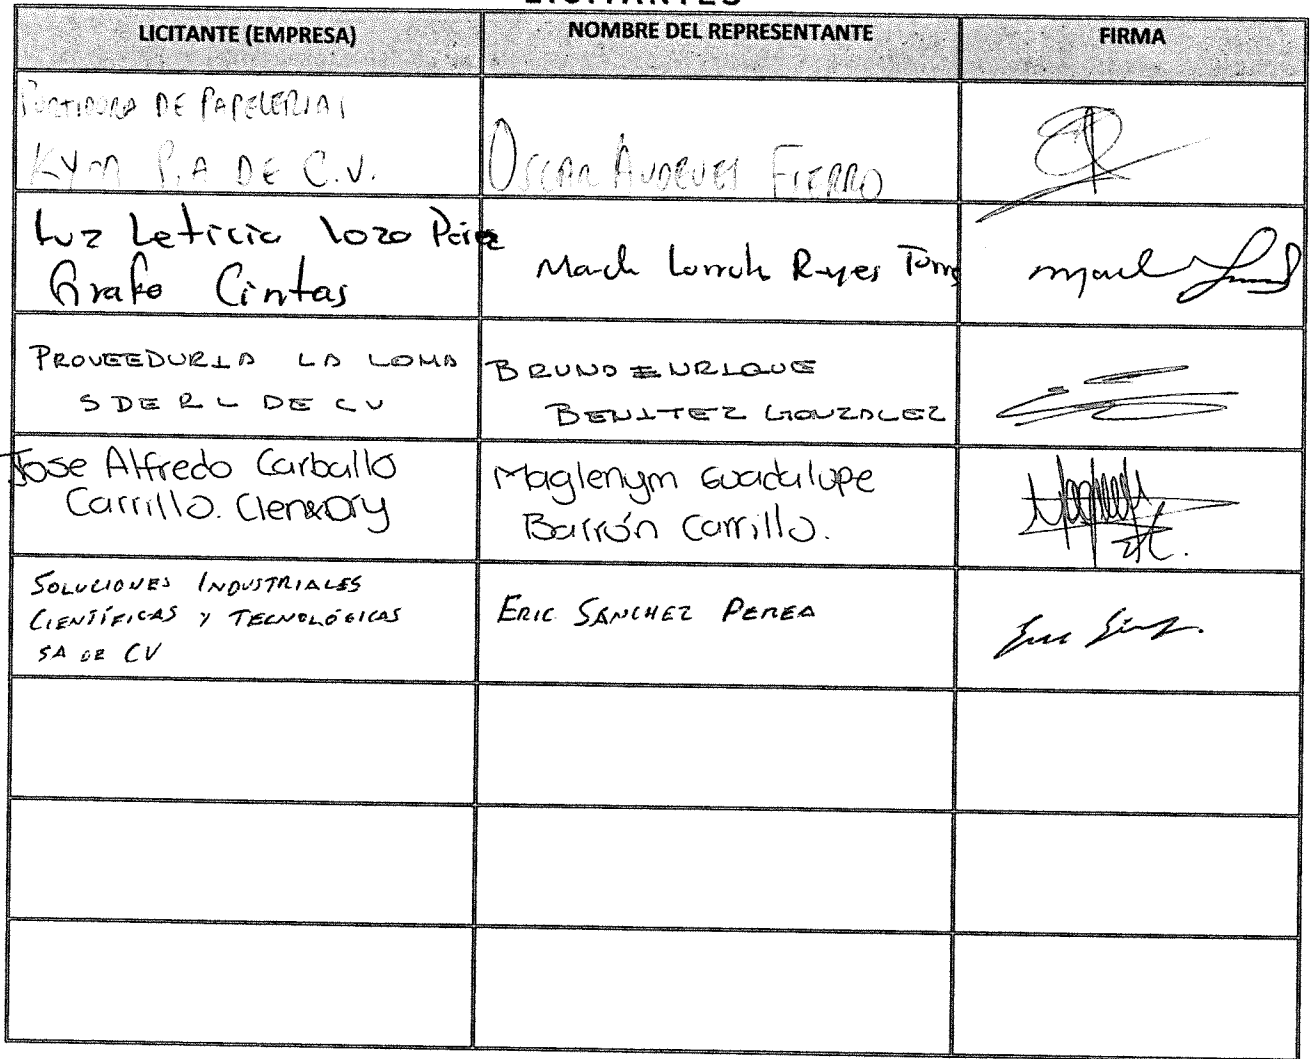 LICITANTES
LICITANTE (EMPRESA) NOMBRE DEL REPRESENTANTE FIRMA
DE PAPELERIAS
KYM DE C.V.
OSCAR FIERRO
Luz Leticia Lozo Pérez
Grafo Cintas
Reyes
PROVEEDURIA LA LOMA
S DE R L DE CV
BRUNO ENRIQUE
BENITEZ GONZALEZ
Jose Alfredo Carballo
Carrillo.
Maglenym Guadalupe
Barrón Carrillo.
SOLUCIONES INDUSTRIALES
CIENTÍFICAS Y TECNOLÓGICAS
SA DE CV
ERIC SANCHEZ PEREA